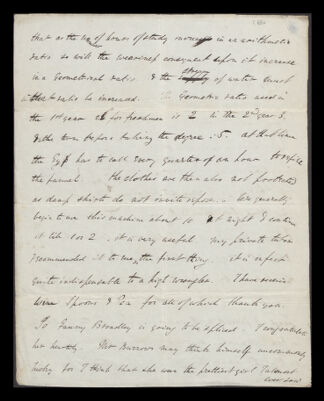 that as the no of hours of study increases in an arithmetic
ratio so will the weariness consequent upon it increase
in a Geometrical ratio & the stream of water must
in that ratio be increased. the Geometric ratio used in
the 1st year for freshmen is 2 in the 2nd year 3.
& the term before taking the degree : 5. at that time
the Gyp has to call every quarter of an hour to refill
the funnel the clothes are then also not protected
as damp shirts do not invite repose. We generally
begin to use this machine about 10 at night & continue
it till 1 or 2. it is very useful. my private tutor
recommended it to me, the first thing. it is in fact
quite indispensable to a high wrangler. I have received
Spoons & Tea for all of which thank you.
So Fanny Bromley is going to be spliced. I congratulate
her heartily. Mr Burrows may think himself uncommonly
lucky for I think that she was the prettiest girl I almost
ever saw